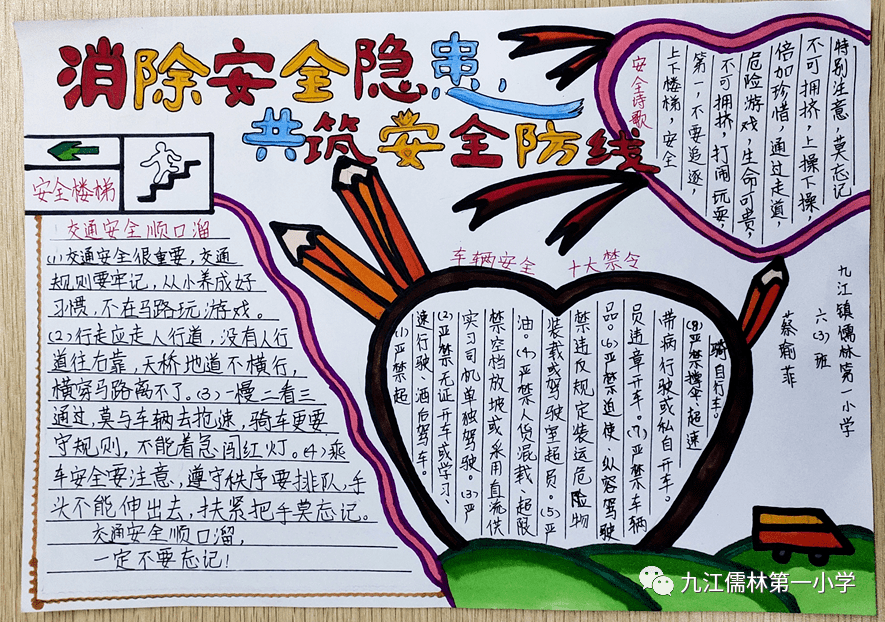 消除安全隐患
共筑安全防线
安全楼梯
交通安全顺口溜
(1)交通安全很重要,交通
规则要牢记,从小养成好
习惯,不在马路玩游戏。
(2)行走应走人行道,没有人行
道往右靠,天桥地道不横行,
横穿马路离不了。(3)一慢二看三
通过,莫与车辆去抢速,骑车更要
守规则,不能着急闯红灯。(4)乘
车安全要注意,遵守秩序要排队,手
头不能伸出去,扶紧把手莫忘记。
交通安全顺口溜,
一定不要忘记!
安全诗歌
特别注意,莫忘记
不可拥挤,上操下操
倍加珍惜,通过走道,
危险游戏,生命可贵,
不可拥挤,打闹玩耍,
第一,不要追逐,
上下楼梯,安全
车辆安全 十大禁令
(1)严禁超
速行驶、酒后驾车。
(2)严禁无证开车或学习
实习司机单独驾驶。(3)严
禁空档放坡或采用直流供
油。(4)严禁人货混载、超限
装载或驾驶室超员。(5)严
禁违反规定装运危险物
品。(6)严禁迫使、纵容驾驶
员违章开车。(7)严禁车辆
带病行驶或私自开车。
(8)严禁撑伞、超速
骑自行车。
九江镇儒林第一小学
六(3)班
蔡瑜菲
九江儒林第一小学